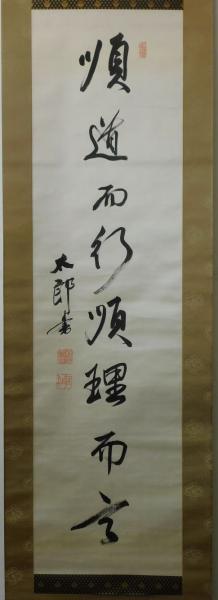 順道而行順理而言
太郎書